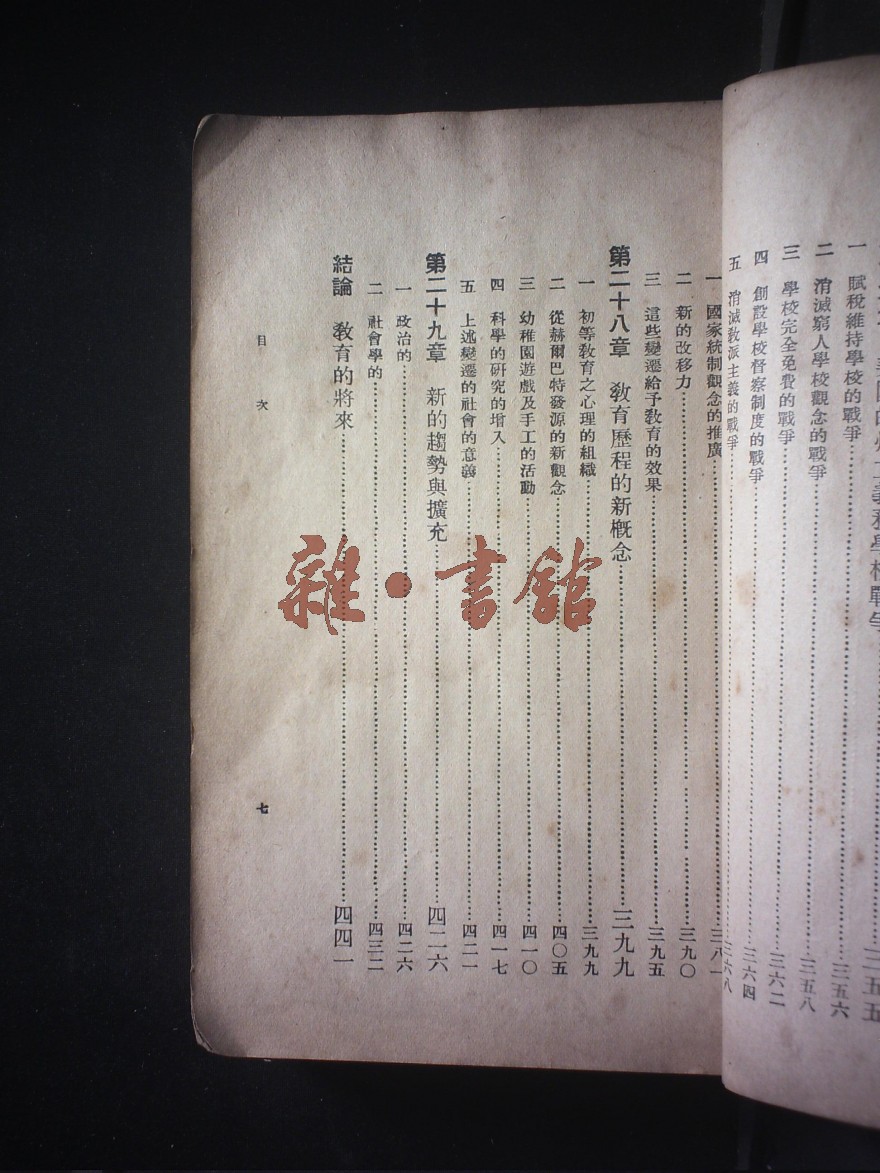 一 賦稅維持學校的戰爭 三五六
二 消滅窮人學校觀念的戰爭 三五八
三 學校完全免費的戰爭 三六二
四 創設學校督察制度的戰爭 三六四
五 消滅敎派主義的戰爭 三六八
一 國家統制觀念的推廣 三八一
二 新的改移力 三九〇
三 這些變遷給予敎育的效果 三九五
第二十八章 敎育歷程的新槪念 三九九
一 初等敎育之心理的組織 三九九
二 從赫爾巴特發源的新觀念 四〇五
三 幼稚園遊戲及手工的活動 四一〇
四 科學的硏究的增入 四一七
五 上述變遷的社會的意義 四二一
第二十九章 新的趨勢與擴充 四二六
一 政治的 四二六
二 社會學的 四三二
結論 敎育的將來 四四一
目次
七
雜·書館